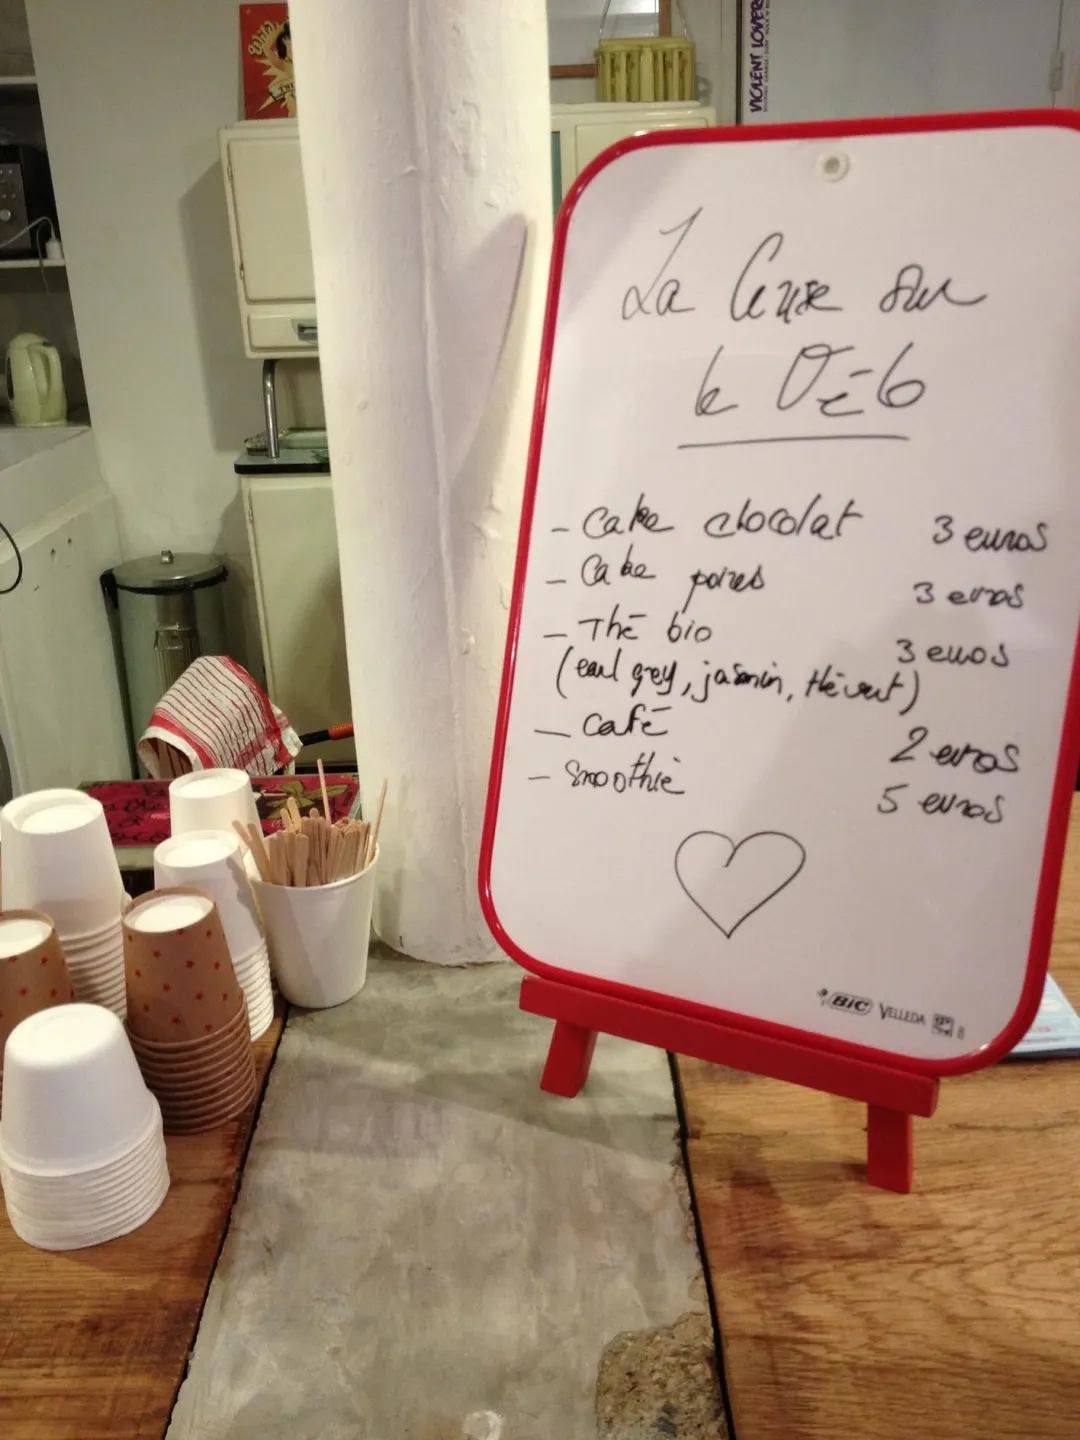 VIOLENT LOVER
La Cerise sur
le Vélo
- Cake chocolat 3 euros
- Cake poires 3 euros
- Thé bio 3 euros
(earl grey, jasmin, thé vert)
- Café 2 euros
- Smoothie 5 euros
BiC VELLEDA